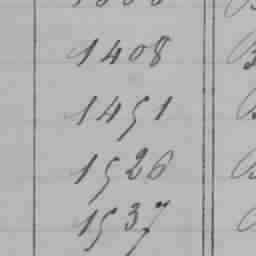 1408
1451
1526
1537